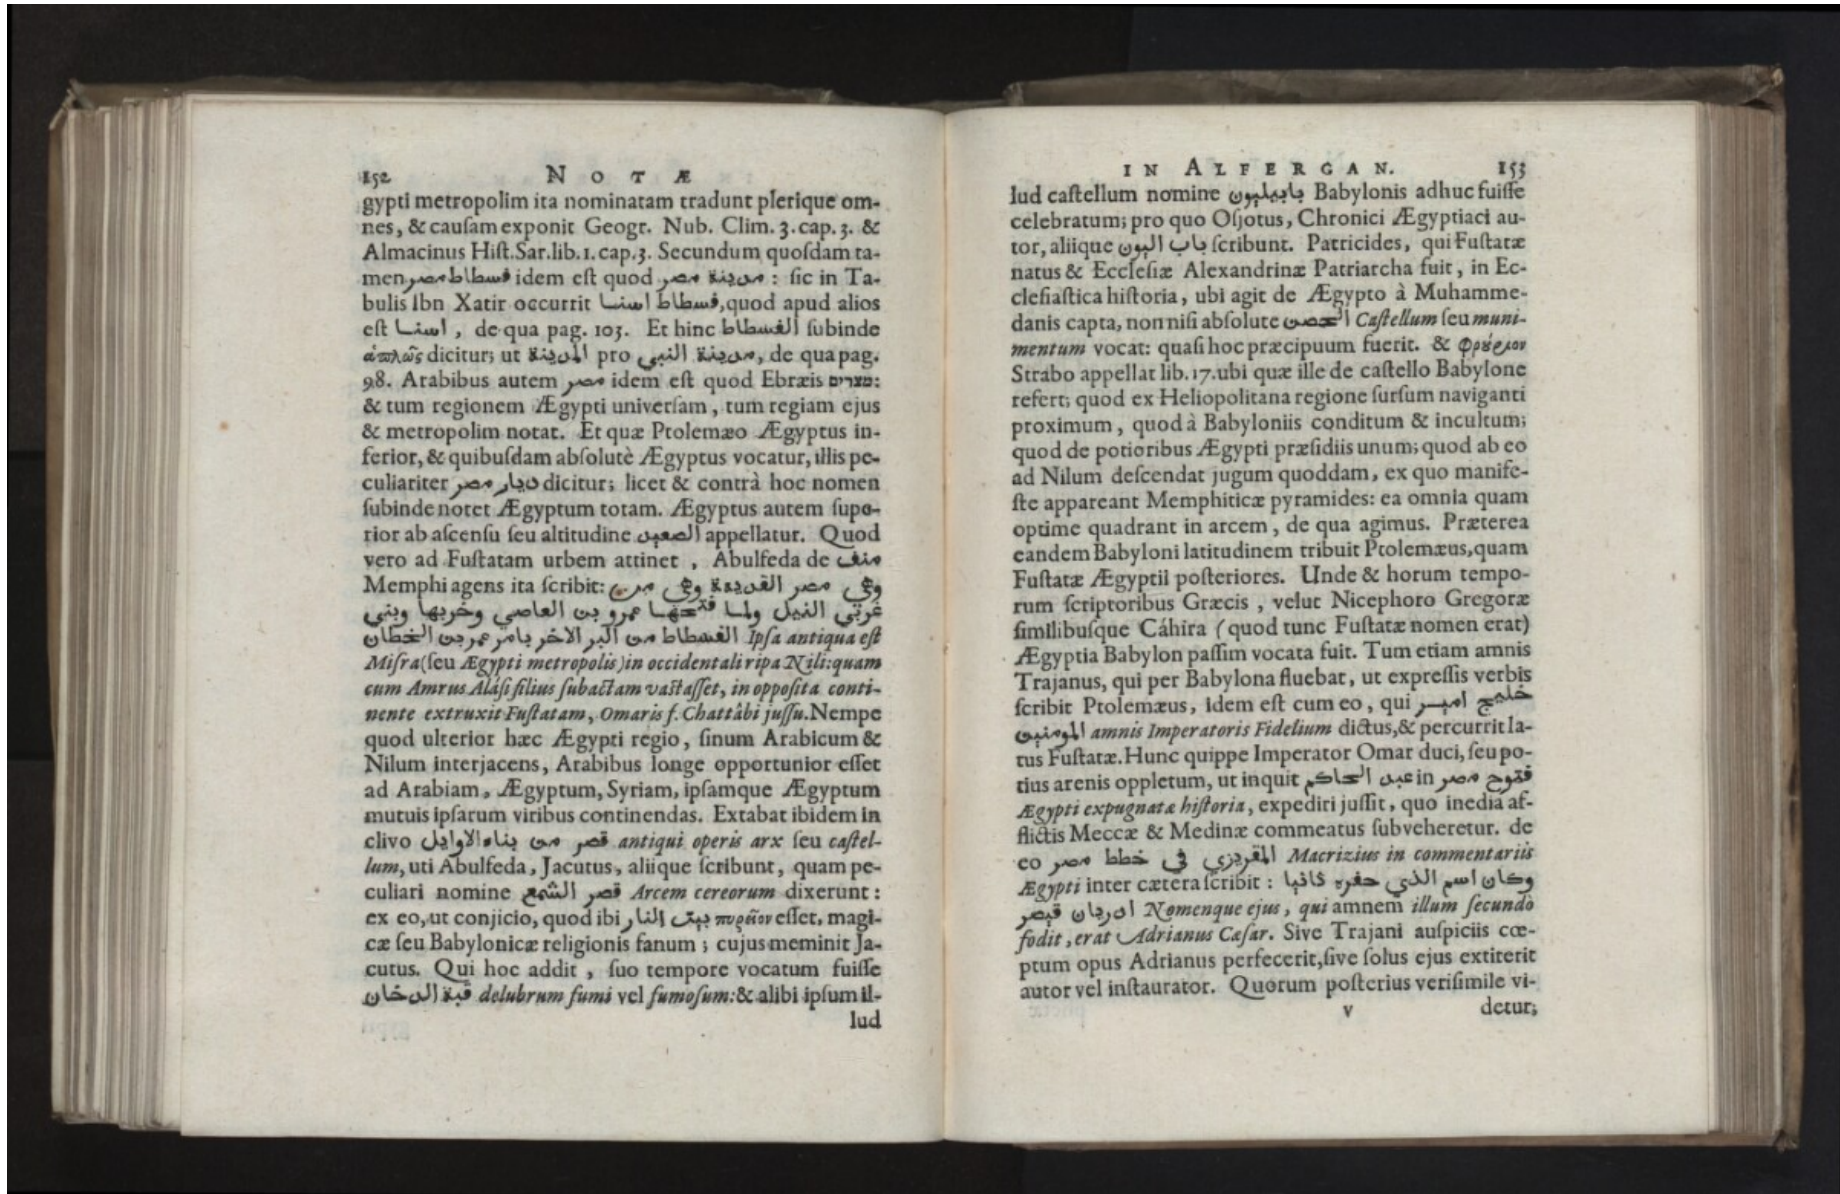 152 NOTÆ
gypti metropolim ita nominatam tradunt plerique om-
nes, & cauſam exponit Geogr. Nub. Clim. 3. cap. 3. &
Almacinus Hiſt. Sar. lib. 1. cap. 3. Secundum quoſdam ta-
men فسطاط مصر idem eſt quod مدينة مصر : ſic in Ta-
bulis Ibn Xatir occurrit فسطاط اسنا, quod apud alios
eſt اسنا, de qua pag. 103. Et hinc الفسطاط ſubinde
ἁπλῶς dicitur; ut المدينة pro مدينة النبي, de qua pag.
98. Arabibus autem مصر idem eſt quod Ebræis מצרים:
& tum regionem Ægypti univerſam, tum regiam ejus
& metropolim notat. Et quæ Ptolemæo Ægyptus in-
ferior, & quibuſdam abſolutè Ægyptus vocatur, illis pe-
culiariter ديار مصر dicitur; licet & contrà hoc nomen
ſubinde notet Ægyptum totam. Ægyptus autem ſupe-
rior ab aſcenſu ſeu altitudine الصعيد appellatur. Quod
vero ad Fuſtatam urbem attinet, Abulfeda de منف
Memphi agens ita ſcribit: وهي مصر القديمة وهي من
غربي النيل ولما فتحها عمرو بن العاصي وخربها وبني
الفسطاط من البر الاخر بامر عمر بن الخطاب Ipſa antiqua eſt
Miſra (ſeu Ægypti metropolis) in occidentali ripa Nili: quam
cum Amrus Aláſi filius ſubactam vaſtaſſet, in oppoſita conti-
nente extruxit Fuſtatam, Omaris f. Chattâbi juſſu. Nempe
quod ulterior hæc Ægypti regio, ſinum Arabicum &
Nilum interjacens, Arabibus longe opportunior eſſet
ad Arabiam, Ægyptum, Syriam, ipſamque Ægyptum
mutuis ipſarum viribus continendas. Extabat ibidem in
clivo قصر من بناء الاوايل antiqui operis arx ſeu caſtel-
lum, uti Abulfeda, Jacutus, aliique ſcribunt, quam pe-
culiari nomine قصر الشمع Arcem cereorum dixerunt:
ex eo, ut conjicio, quod ibi بيت النار πυρεῖον eſſet, magi-
cæ ſeu Babylonicæ religionis fanum; cujus meminit Ja-
cutus. Qui hoc addit, ſuo tempore vocatum fuiſſe
قبة الدخان delubrum fumi vel fumoſum: & alibi ipſum il-
lud
IN ALFERGAN. 153
lud caſtellum nomine بابيليون Babylonis adhuc fuiſſe
celebratum; pro quo Oſjotus, Chronici Ægyptiaci au-
tor, aliique باب اليون ſcribunt. Patricides, qui Fuſtatæ
natus & Eccleſiæ Alexandrinæ Patriarcha fuit, in Ec-
cleſiaſtica hiſtoria, ubi agit de Ægypto à Muhamme-
danis capta, non niſi abſolute الحصن Caſtellum ſeu muni-
mentum vocat: quaſi hoc præcipuum fuerit. & Φρούριον
Strabo appellat lib. 17. ubi quæ ille de caſtello Babylone
refert; quod ex Heliopolitana regione ſurſum naviganti
proximum, quod à Babyloniis conditum & incultum;
quod de potioribus Ægypti præſidiis unum; quod ab eo
ad Nilum deſcendat jugum quoddam, ex quo manife-
ſte appareant Memphiticæ pyramides: ea omnia quam
optime quadrant in arcem, de qua agimus. Præterea
eandem Babyloni latitudinem tribuit Ptolemæus, quam
Fuſtatæ Ægyptii poſteriores. Unde & horum tempo-
rum ſcriptoribus Græcis, velut Nicephoro Gregoræ
ſimilibuſque Cáhira (quod tunc Fuſtatæ nomen erat)
Ægyptia Babylon paſſim vocata fuit. Tum etiam amnis
Trajanus, qui per Babylona fluebat, ut expreſſis verbis
ſcribit Ptolemæus, idem eſt cum eo, qui خليج امير
المومنين amnis Imperatoris Fidelium dictus, & percurrit la-
tus Fuſtatæ. Hunc quippe Imperator Omar duci, ſeu po-
tius arenis oppletum, ut inquit عبد الحاكم in فتوح مصر
Ægypti expugnatæ hiſtoria, expediri juſſit, quo inedia af-
flictis Meccæ & Medinæ commeatus ſubveheretur. de
eo المقريزي في خطط مصر Macrizius in commentariis
Ægypti inter cætera ſcribit: وكان اسم الذي حفره ثانيا
ادريان قيصر Nomenque ejus, qui amnem illum ſecundò
fodit, erat Adrianus Cæſar. Sive Trajani auſpiciis cœ-
ptum opus Adrianus perfecerit, ſive ſolus ejus extiterit
autor vel inſtaurator. Quorum poſterius veriſimile vi-
v detur;